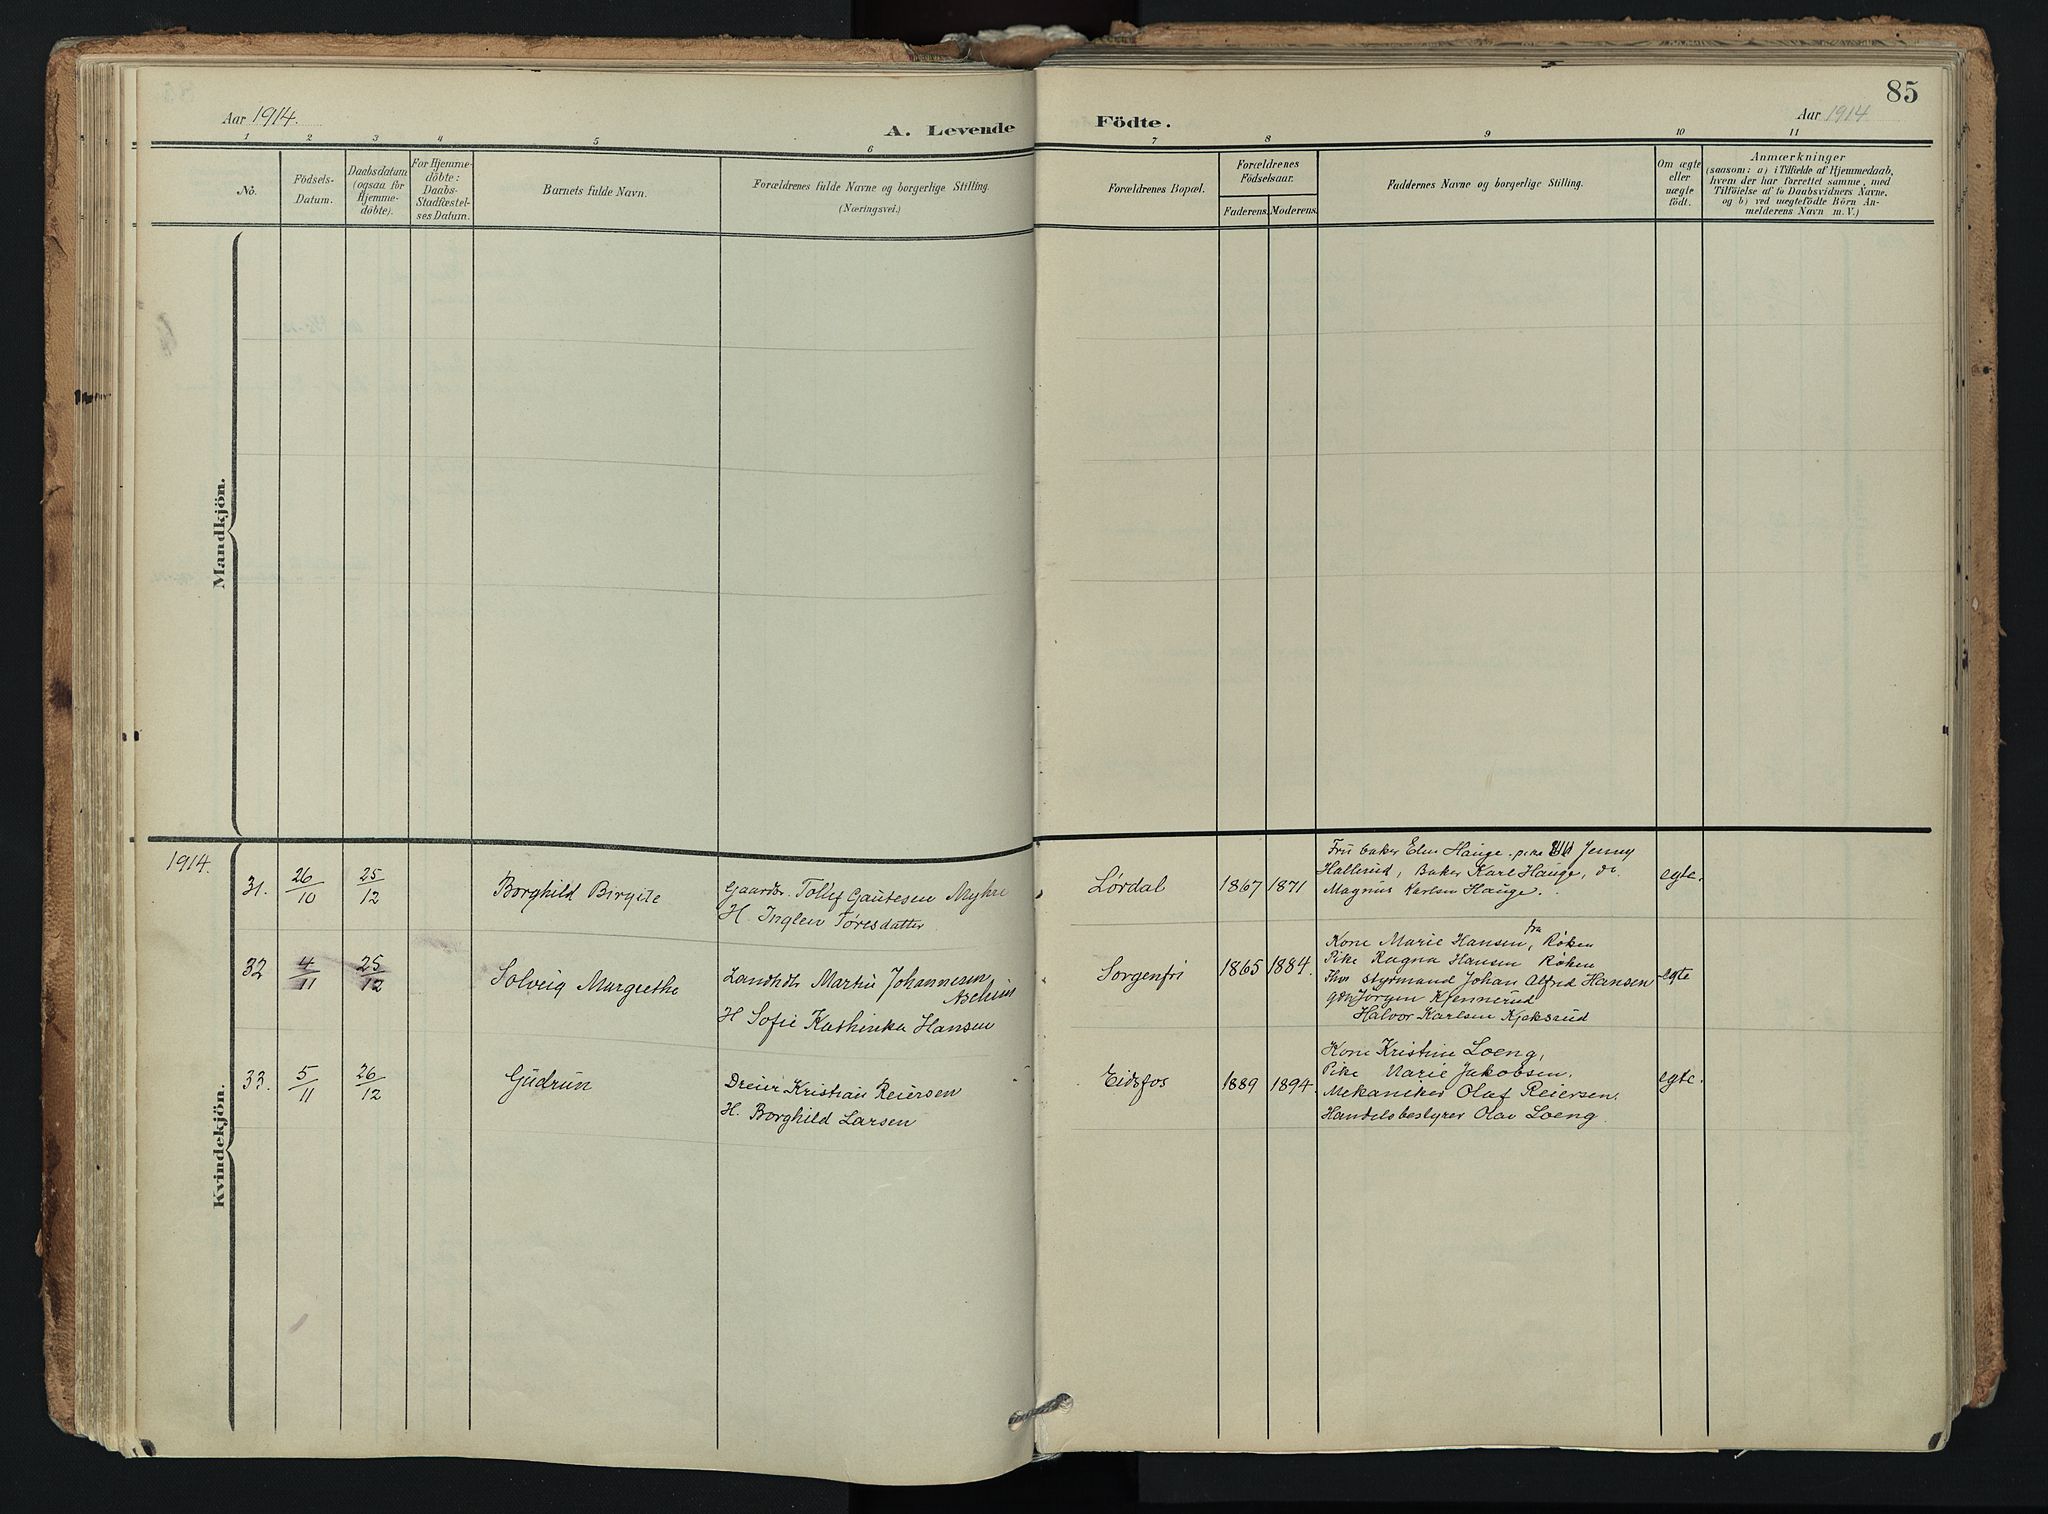 85
Aar 1914.
A. Levende
Födte.
Aar 1914
1 2 3 4 5 6 7 8 9 10 11
No.
Födsels-
Datum.
Daabsdatum
(ogsaa for
Hjemme-
döbte).
For Hjemme-
döbte:
Daabs-
Stadfæstel-
ses Datum.
Barnets fulde Navn.
Forældrenes fulde Navne og borgerlige Stilling.
(Næringsvei.)
Forældrenes Bopæl.
Forældrenes
Födselsaar.
Faderens. Moderens.
Faddernes Navne og borgerlige Stilling.
Om ægte
eller
uægte
født.
Anmærkninger
(saasom: a) i Tilfælde af Hjemmedaab,
hvem der har forrettet samme, med
Tilföielse af to Daabsvidners Navne.
og b) ved uægtefödte Börn An-
melderens Navn m. V.)
Mandkjön.
Kvindekjön.
1914.
31. 26/10 25/12 Borghild Birgite
Gaardbr. Tollef Gautesen Myhre
H. Inglev Tøresdatter
Lørdal 1867 1871
Fru baker Elen Hauge. pike Jenny
Hallerud, Baker Karl Hauge, do.
Magnus Karlsen Hauge.
egte.
32 4/11 25/12 Solveig Margrethe
Landhdl. Martin Johannesen
H Sofie Kathinka Hansen
Sorgenfri 1865 1884.
Kone Marie Hansen, fra Røken
Pike Ragna Hansen Røken
styrmand Johan Alfred Hansen
Jørgen Kjennerud
Halvor Karlsen Kjeksrud
egte
33. 5/11 26/12 Gudrun
Dreier Kristian Reiersen
H. Borghild Larsen
Eidsfos 1889 1894.
Kone Kristine Loeng,
Pike Marie Jakobsen,
Mekaniker Olaf Reiersen.
Handelsbestyrer Olav Loeng
egte.